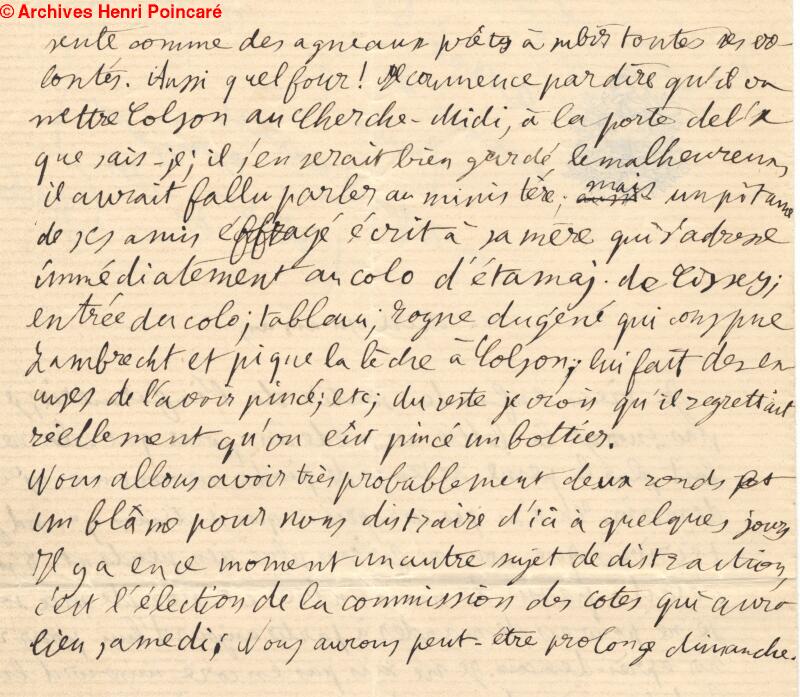 © Archives Henri Poincaré
sente comme des agneaux prêts à subir toutes ses vo
lontés. Aussi quel four! Il commence par dire qu'il va
mettre Colson au Cherche-Midi, à la porte de l'X
que sais-je; il s'en serait bien gardé le malheureux,
il aurait fallu parler au ministère; mais un pitaine
de ses amis effrayé écrit à sa mère qui s'adresse
immédiatement au colo d'étamaj. de Cissey;
entrée du colo; tableau; rogne du géné qui conspue
Lambrecht et pique la lèche à Colson; lui fait des ex
cuses de l'avoir pincé; etc; du reste je crois qu'il regrettait
réellement qu'on eût pincé un bottier.
Nous allons avoir très probablement deux ronds et
un blâme pour nous distraire d'ici à quelques jours
Il y a en ce moment un autre sujet de distraction,
c'est l'élection de la commission des cotes qui aura
lieu samedi; Nous aurons peut-être prolonge dimanche.